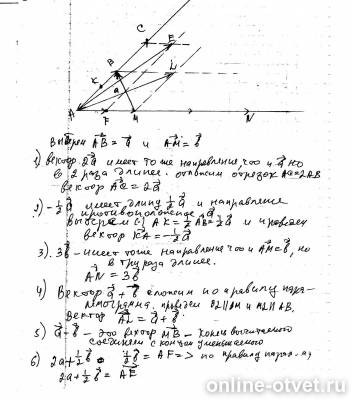 C
E
B
L
K
a
A
F
M
N
Выберем AB = a и AM = b
1) вектор 2a имеет то же направление, что и a но
в 2 раза длинее. отложим отрезок AC = 2AB
вектор AC = 2a
2) -1/2 a имеет длину 1/2 a и направление
противоположное a.
Выберем (·) AK = 1/2 AB = 1/2 a и проведем
вектор KA = -1/2 a
3). 3b - имеет тоже направление что и AM = b, но
в три раза длинее.
AN = 3b
4) Вектор a + b сложим по правилу пара-
лелограмма. проведем BL||AM и ML||AB.
Вектор AL = a + b
5) a - b - это вектор MB - конец вычитаемого
соединяем с концом уменьшаемого
6) 2a + 1/2 b 1/2 b = AF => по правилу парал-ма
2a + 1/2 b = AE
online-otvet.ru